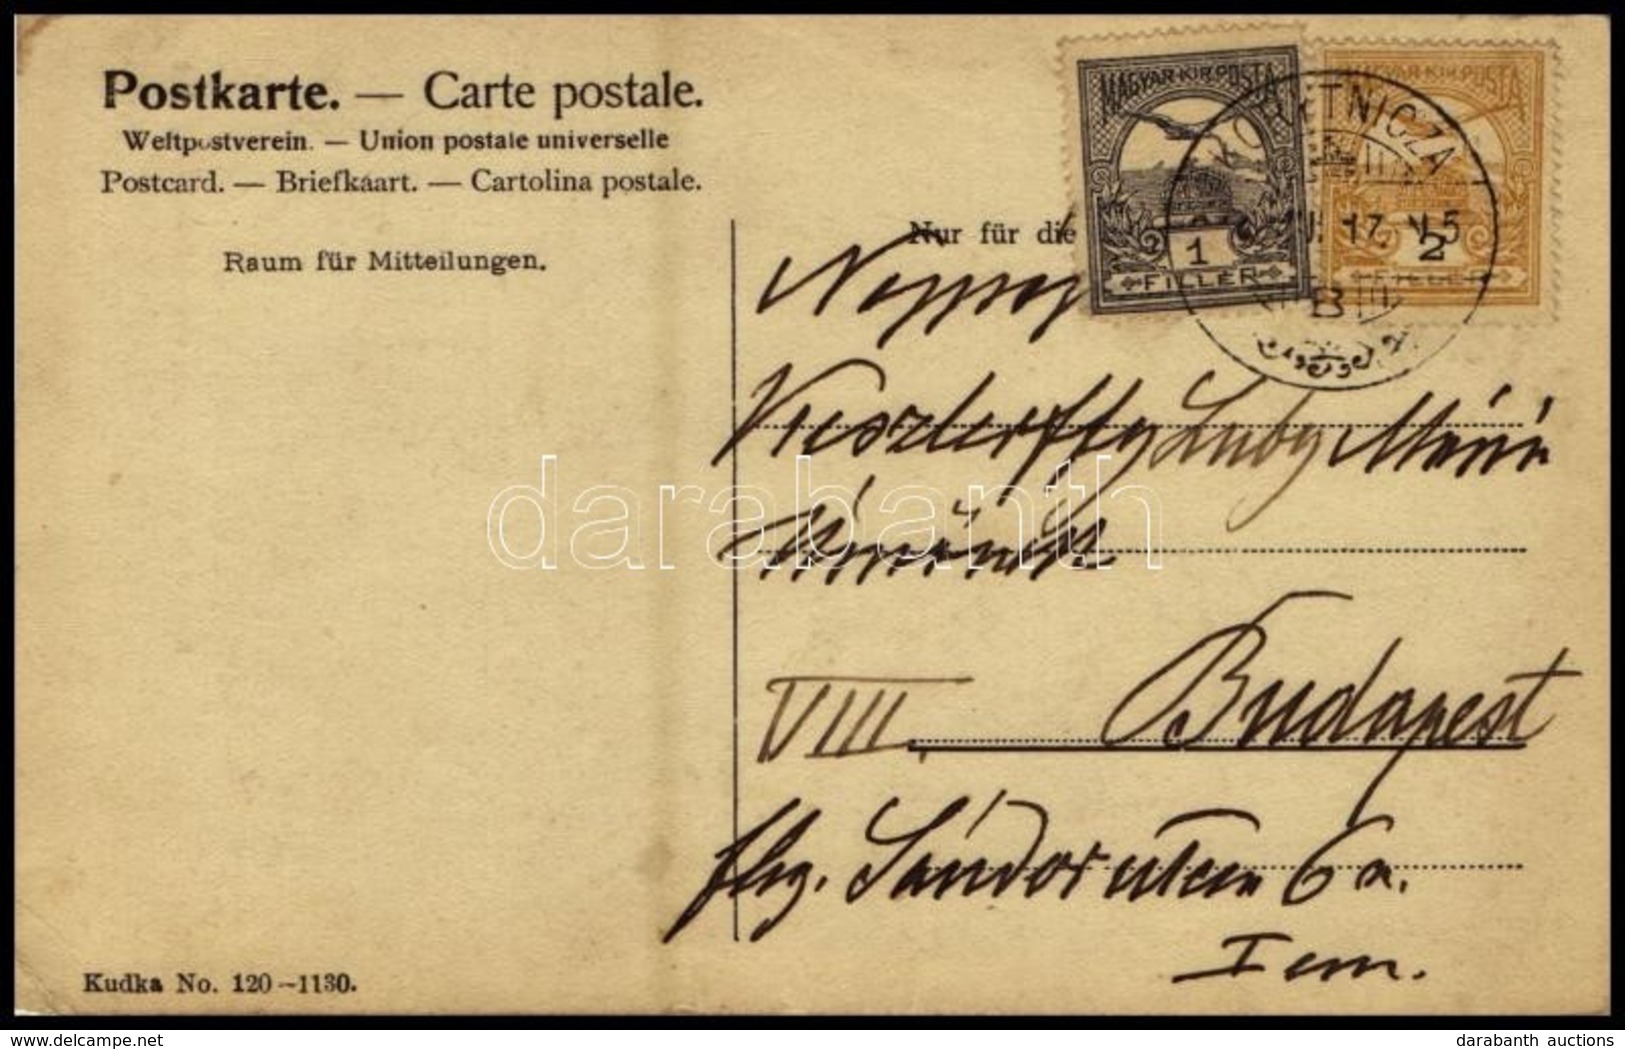 Postkarte. — Carte postale.
Weltpostverein. — Union postale universelle
Postcard. — Briefkaart. — Cartolina postale.
Raum für Mitteilungen.
Nur für die
MAGYAR KIR. POSTA
1
FILLÉR
MAGYAR KIR. POSTA
2
FILLÉR
B
Luby Mária
VIII. Budapest
Sándor utca 6 a.
I em.
Kudka No. 120–1130.
darabanth
delcampe.net
darabanth auctions